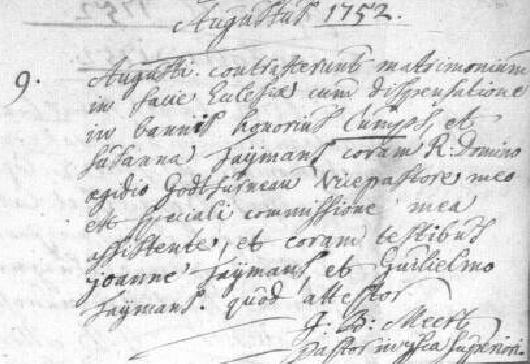 Augustus 1752.
9. Augusti contraxerunt matrimonium
in facie Eclesiæ cum dispensatione
in bannis honorius Cumps, et
susanna Haÿmans coram R: Domino
ægidio vicepastore meo
ex speciali commissione mea
assistente, et coram testibus
joanne Haÿmans, et Guilielmo
Haÿmans. quod attestor
J. B: Meert
pastor